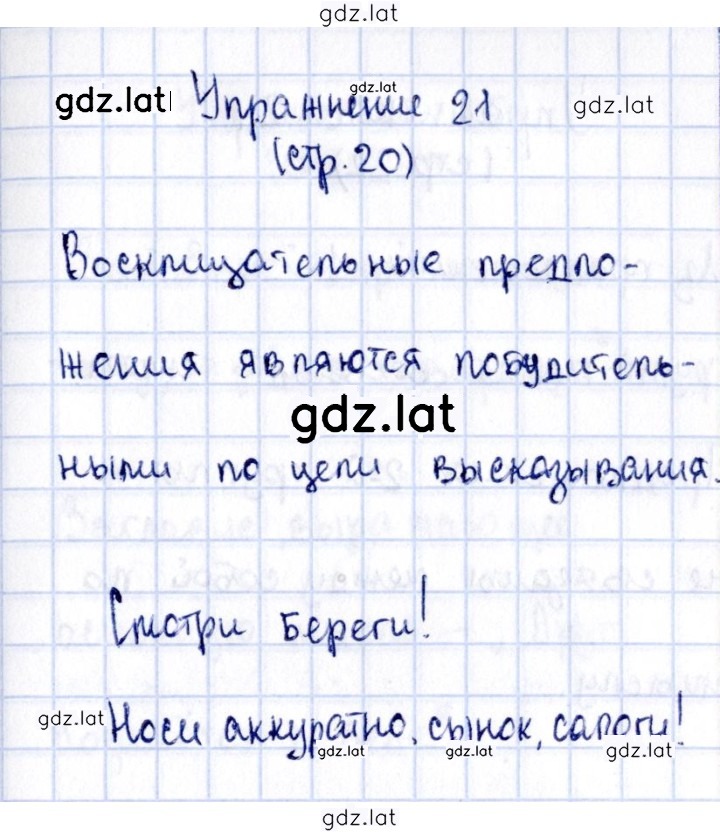 gdz.lat
gdz.lat Упражнение 21 gdz.lat gdz.lat
(стр. 20)
Восклицательные предло-
жения являются побудитель-
gdz.lat
ными по цели высказывания.
gdz.lat
Смотри береги!
gdz.lat Носи аккуратно, сынок, сапоги!
gdz.lat gdz.lat gdz.lat
gdz.lat